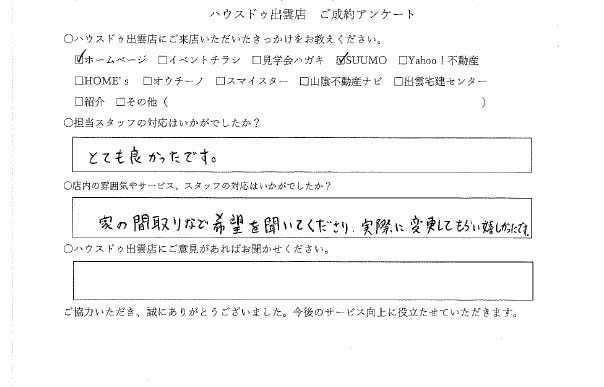 ハウスドゥ出雲店 ご成約アンケート
○ハウスドゥ出雲店にご来店いただいたきっかけをお教えください。
☑ホームページ □イベントチラシ □見学会ハガキ ☑SUUMO □Yahoo！不動産
□HOME's □オウチーノ □スマイスター □山陰不動産ナビ □出雲宅建センター
□紹介 □その他（ ）
○担当スタッフの対応はいかがでしたか？
とても良かったです。
○店内の雰囲気やサービス、スタッフの対応はいかがでしたか？
家の間取りなど希望を聞いてくださり、実際に変更してもらい嬉しかったです。
○ハウスドゥ出雲店にご意見があればお聞かせください。
ご協力いただき、誠にありがとうございました。今後のサービス向上に役立たせていただきます。